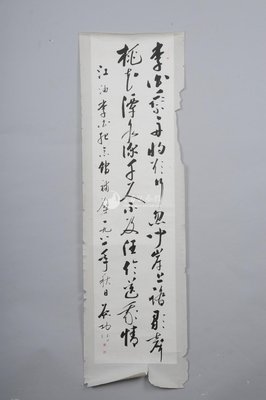 李白乘舟將欲行忽聞岸上踏歌聲
桃花潭水深千尺不及汪倫送我情
江油李白紀念館補壁 一九八二年秋日 启功